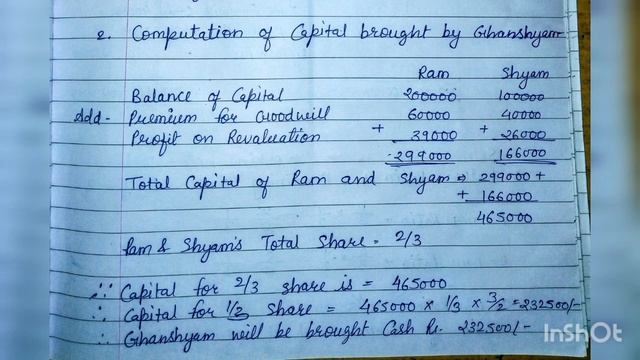 2. Computation of Capital brought by Ghanshyam
Ram Shyam
Balance of Capital 200000 100000
Add - Premium for Goodwill 60000 40000
Profit on Revaluation + 39000 + 26000
299000 166000
Total Capital of Ram and Shyam ⇒ 299000 +
+ 166000
465000
Ram & Shyam's Total Share = 2/3
∴ Capital for 2/3 share is = 465000
∴ Capital for 1/3 share = 465000 × 1/3 × 3/2 = 232500/-
∴ Ghanshyam will be brought Cash Rs. 232500/-
InShOt